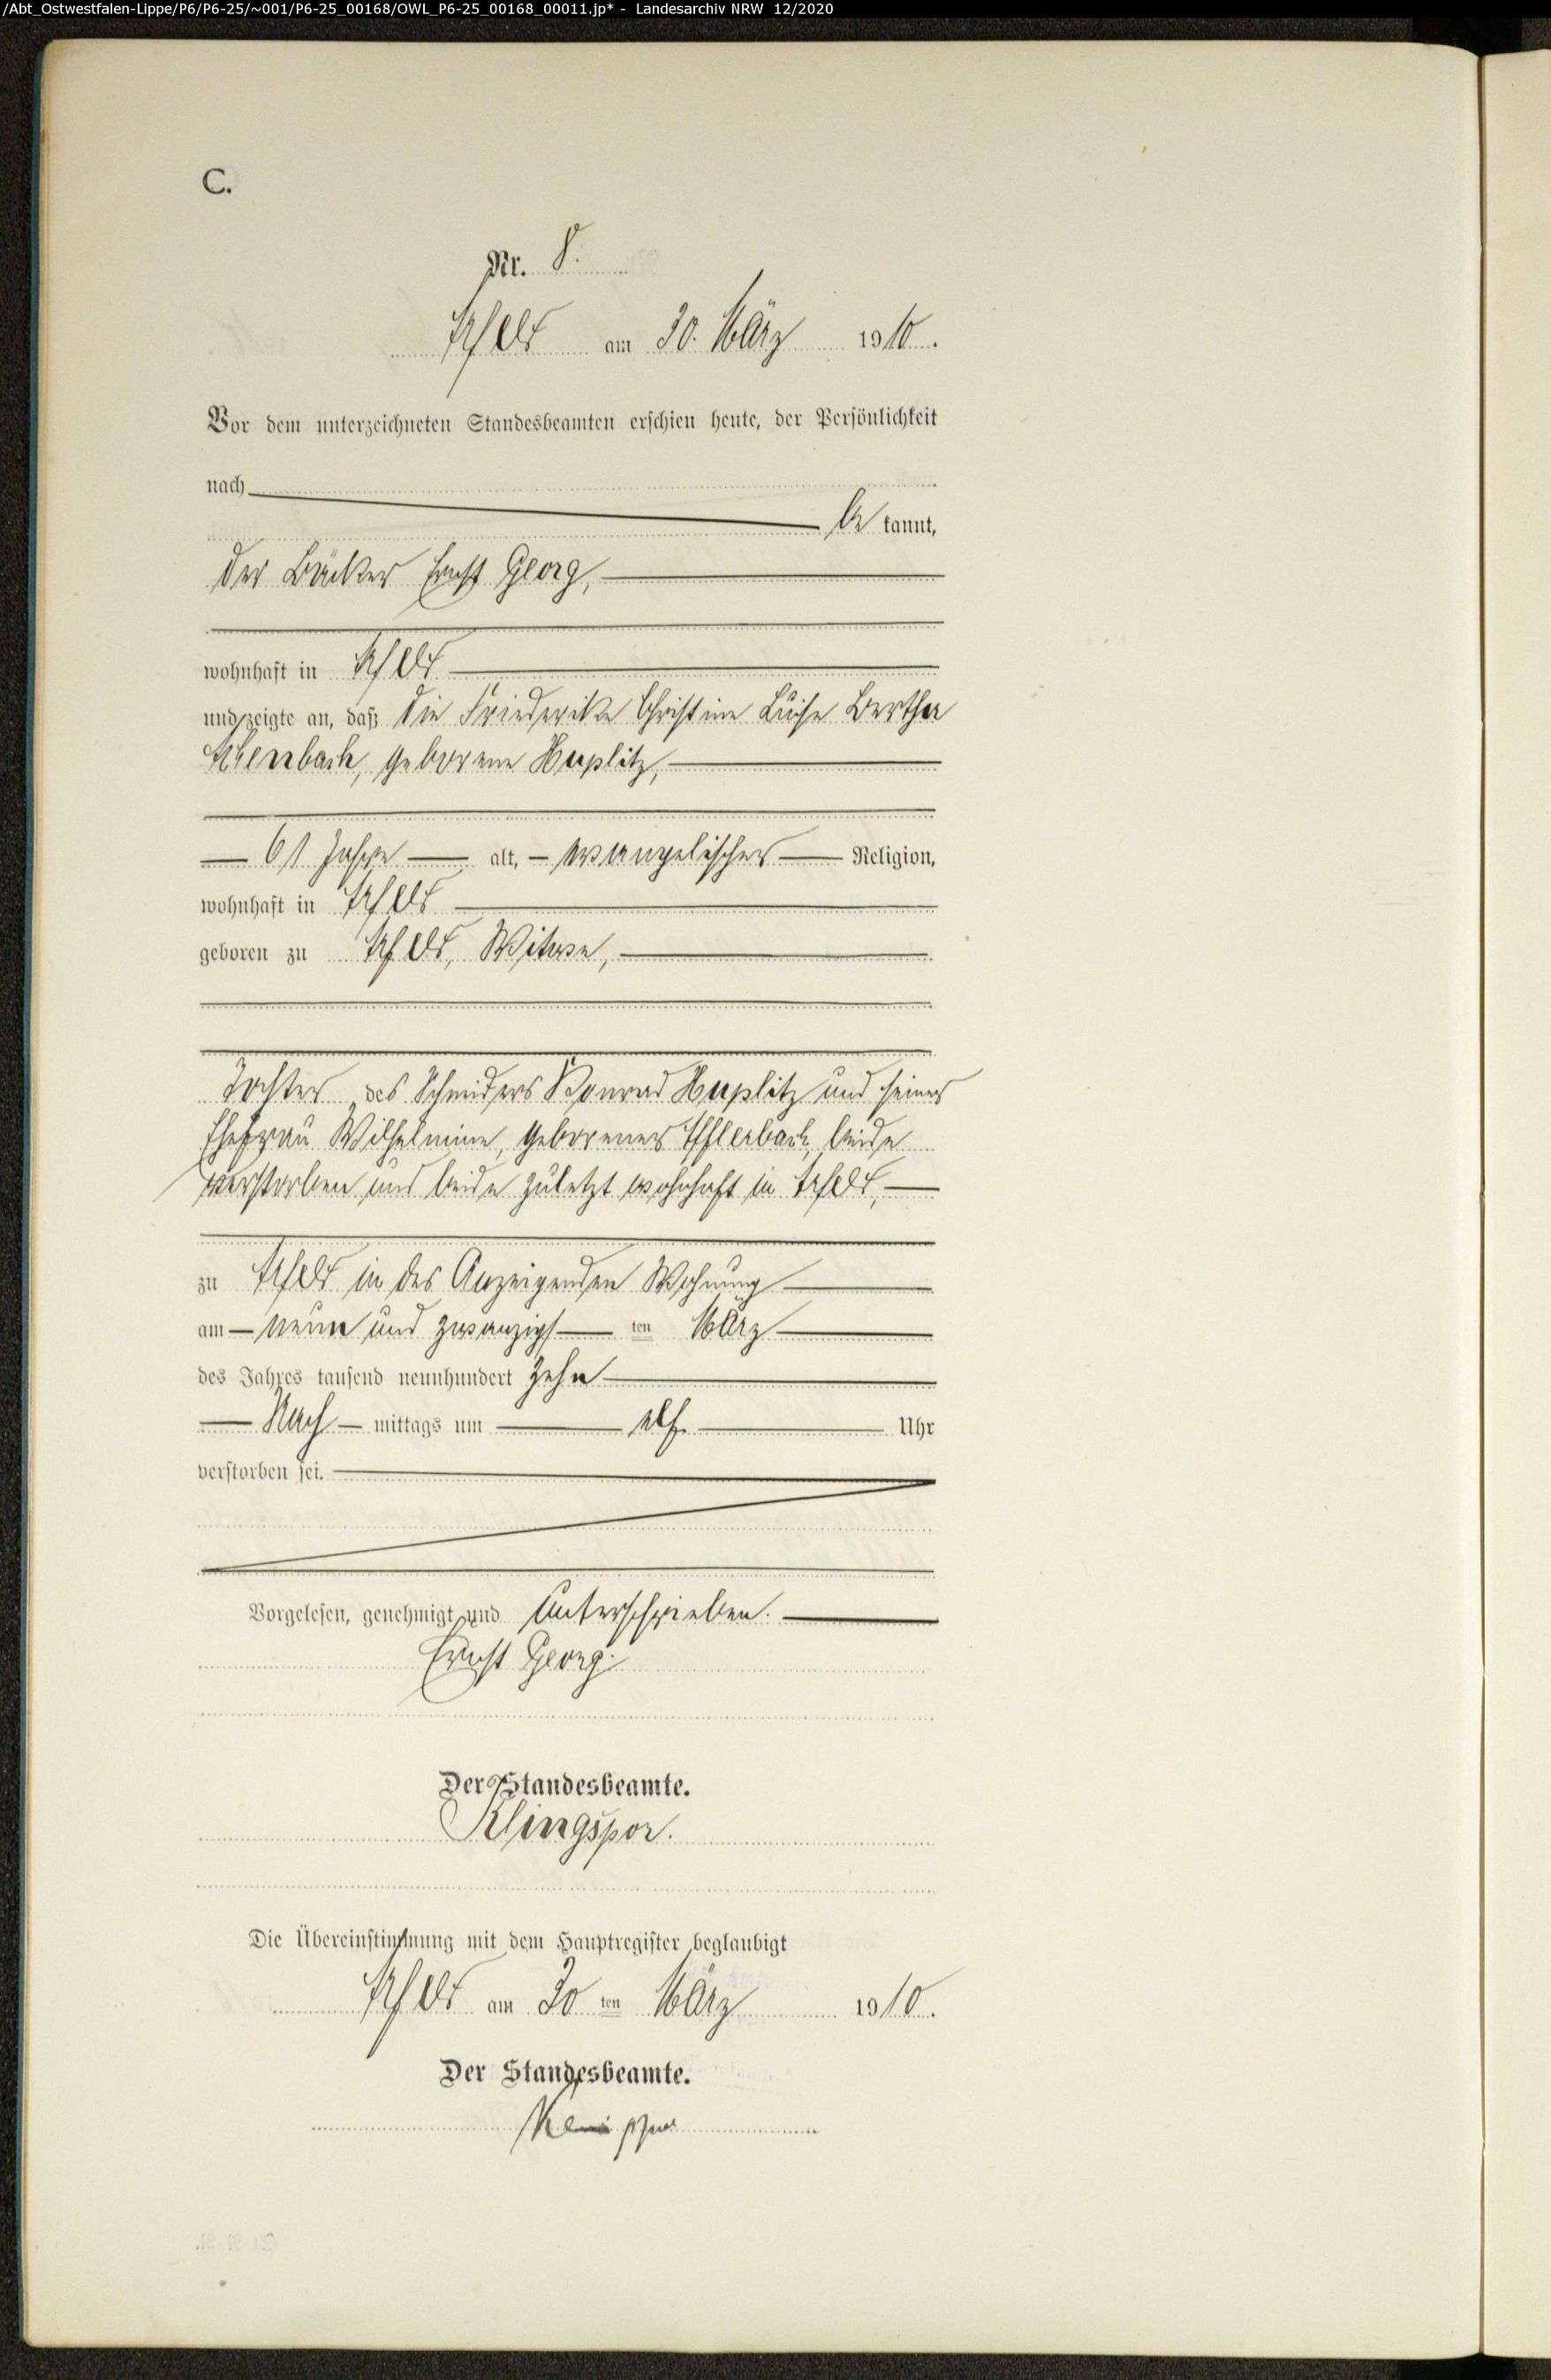 /Abt_Ostwestfalen-Lippe/P6/P6-25/~001/P6-25_00168/OWL_P6-25_00168_00011.jp* - Landesarchiv NRW 12/2020
C.
Nr. 8.
am 30. März 1910.
Vor dem unterzeichneten Standesbeamten erschien heute, der Persönlichkeit
nach
be kannt,
der Bäcker Ernst Georg,
wohnhaft in
und zeigte an, daß die Friederike Christine Luise Bertha
geborene Huplitz,
61 Jahre alt, evangelischer Religion,
wohnhaft in
geboren zu Witwe,
Tochter des Schneiders Konrad Huplitz und seiner
Ehefrau Wilhelmine, geborener beide
verstorben und beide zuletzt wohnhaft in
zu in des Anzeigenden Wohnung
am neun und zwanzigsten März
des Jahres tausend neunhundert zehn
Nach mittags um elf Uhr
verstorben sei.
Vorgelesen, genehmigt und unterschrieben.
Ernst Georg.
Der Standesbeamte.
Klingspor.
Die Übereinstimmung mit dem Hauptregister beglaubigt
am 30 ten März 1910.
Der Standesbeamte.